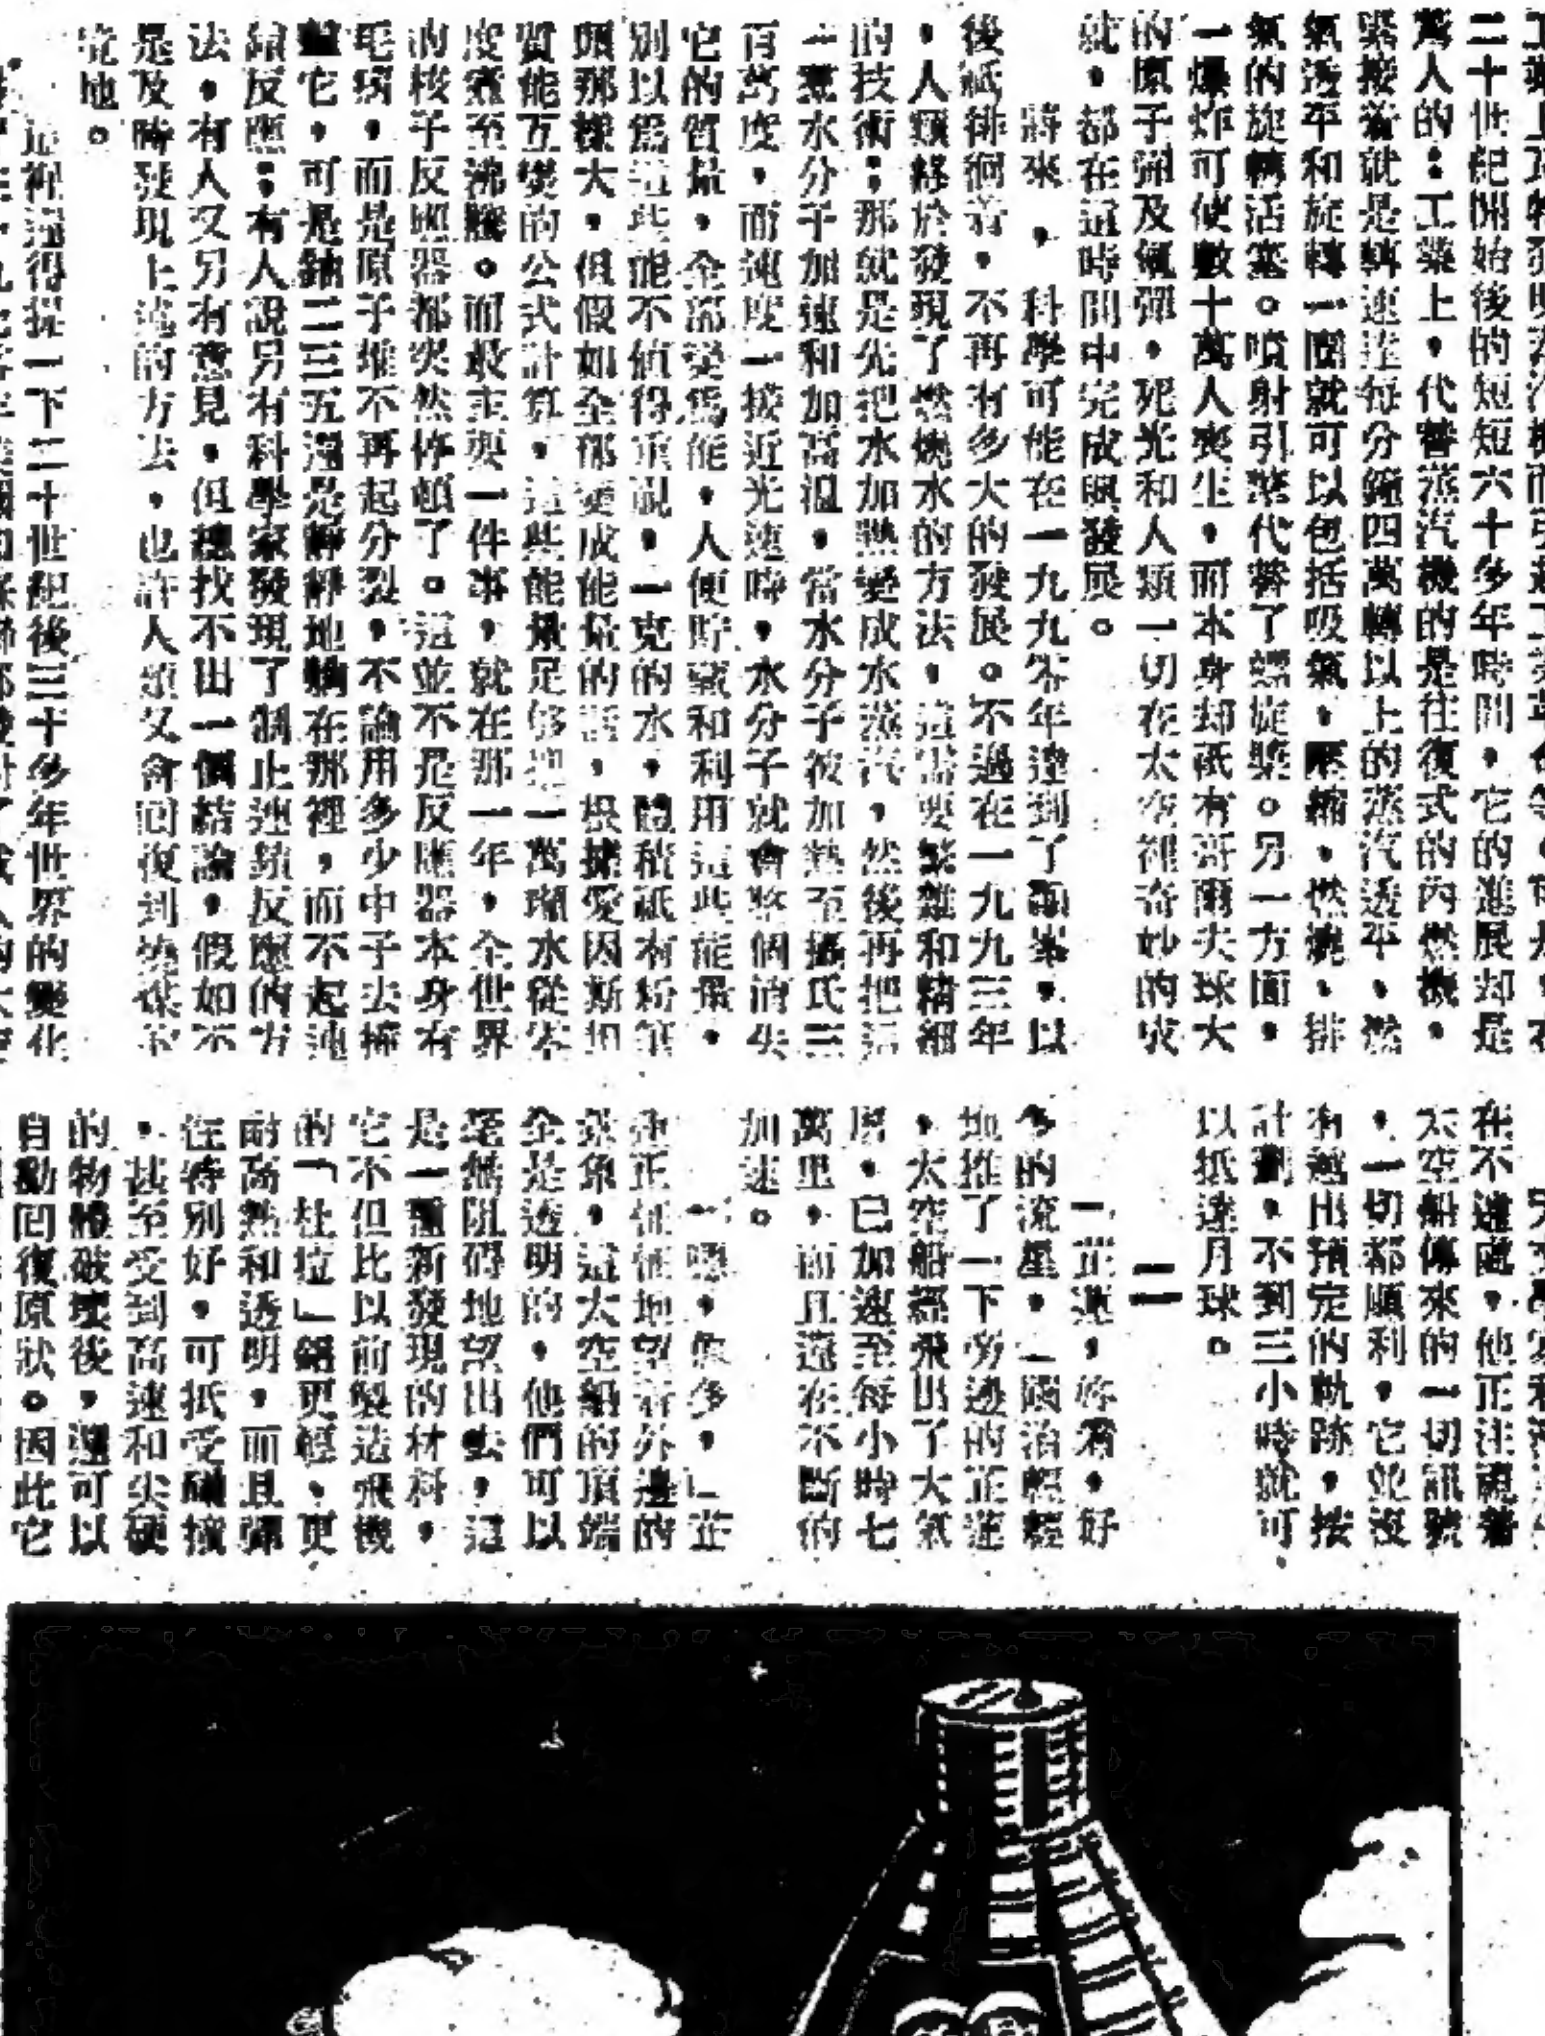 二十世紀開始後的短短六十多年時間，它的進展却是
驚人的：工業上，代替蒸汽機的是往復式的內燃機，
緊接着就是轉速達每分鐘四萬轉以上的蒸汽透平、燃
氣透平和旋轉一圈就可以包括吸氣、壓縮、燃燒、排
氣的旋轉活塞。噴射引擎代替了螺旋槳。另一方面，
一爆炸可使數十萬人喪生，而本身却祇有哥爾夫球大
的原子彈及氫彈，死光和人類一切在太空裡奇妙的成
就，都在這時間中完成與發展。
將來，科學可能在一九九零年達到了顛峯，以
後祇徘徊着，不再有多大的發展。不過在一九九三年
，人類終於發現了燃燒水的方法，這需要繁雜和精細
的技術：那就是先把水加熱變成水蒸汽，然後再把這
一羣水分子加速和加高溫，當水分子被加熱至攝氏三
百萬度，而速度一接近光速時，水分子就會整個消失
它的質量，全部變爲能，人便貯藏和利用這些能量。
別以爲這些能不值得重視，一克的水，體積祇有粉筆
頭那樣大，但假如全部變成能量的話，根據愛因斯坦
質能互變的公式計算，這些能量足够把一萬噸水從零
度煮至沸騰。而最主要一件事，就在那一年，全世界
的核子反應器都突然停頓了。這並不是反應器本身有
毛病，而是原子堆不再起分裂，不論用多少中子去撞
擊它，可是鈾二三五還是靜靜地躺在那裡，而不起連
鎖反應；有人說另有科學家發現了制止連鎖反應的方
法，有人又另有意見，但總找不出一個結論，假如不
是及時發現上述的方法，也許人類又會回復到燒煤的
境地。
這裡還得提一下二十世紀後三十多年世界的變化
在不遠處，他正注視着
太空船傳來的一切訊號
，一切都順利，它並沒
有越出預定的軌跡，按
計劃，不到三小時就可
以抵達月球。
二
「正運，你看，好
多的流星，」國治輕輕
地推了一下旁邊的正運
，太空船經飛出了大氣
層，已加速至每小時七
萬里，而且還在不斷的
加速。
「嗯，很多，」正
運正怔怔地望着外邊的
景象，這太空船的頂端
全是透明的，他們可以
毫無阻碍地望出去，這
是一種新發現的材料，
它不但比以前製造飛機
的「杜拉」鋁更輕、更
耐高熱和透明，而且彈
性特別好，可抵受碰撞
，甚至受到高速和尖硬
的物體破壞後，還可以
自動回復原狀。因此它